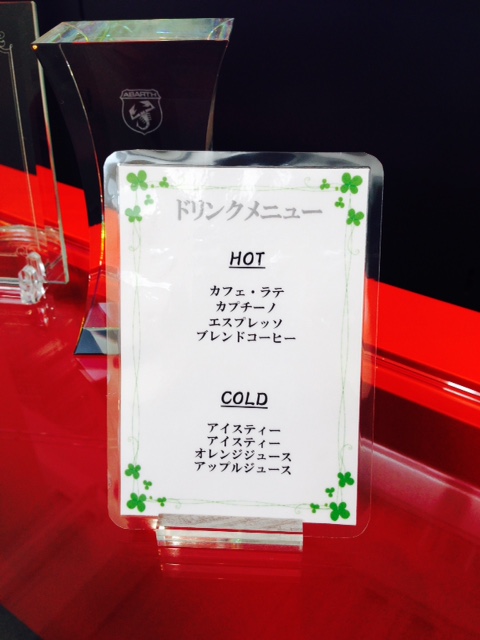 ABARTH
ドリンクメニュー
HOT
カフェ・ラテ
カプチーノ
エスプレッソ
ブレンドコーヒー
COLD
アイスティー
アイスティー
オレンジジュース
アップルジュース